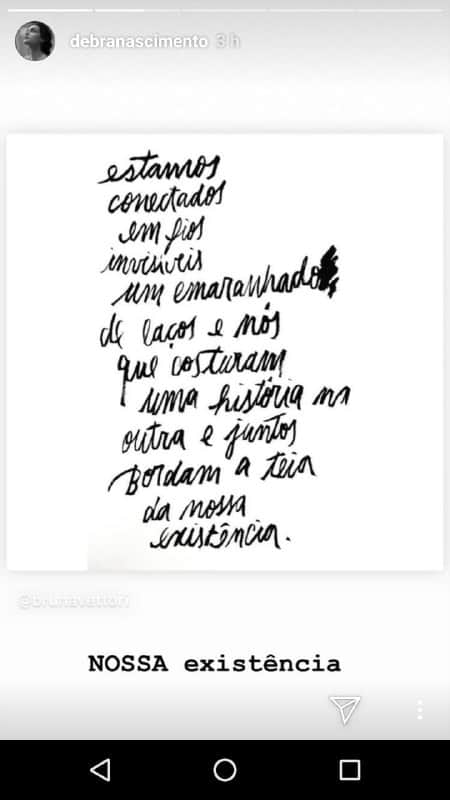 debranascimento 3 h
estamos
conectados
em fios
invisíveis
um emaranhado
de laços e nós
que costuram
uma história na
outra e juntos
bordam a teia
da nossa
existência.
@brunavettori
NOSSA existência